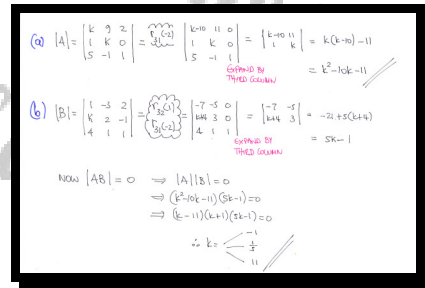 (a) |A| = | k 9 2 ; 1 k 0 ; 5 -1 1 | = r₃₁(-2) | k-10 11 0 ; 1 k 0 ; 5 -1 1 | = | k-10 11 ; 1 k | = k(k-10) - 11
EXPAND BY THIRD COLUMN
= k² - 10k - 11
(b) |B| = | 1 -3 2 ; k 2 -1 ; 4 1 1 | = r₃₂(1) r₃₁(-2) = | -7 -5 0 ; k+4 3 0 ; 4 1 1 | = | -7 -5 ; k+4 3 | = -21 + 5(k+4)
EXPAND BY THIRD COLUMN
= 5k - 1
NOW |AB| = 0 ⇒ |A||B| = 0
⇒ (k²-10k-11)(5k-1) = 0
⇒ (k-11)(k+1)(5k-1) = 0
∴ k = -1
1/5
11